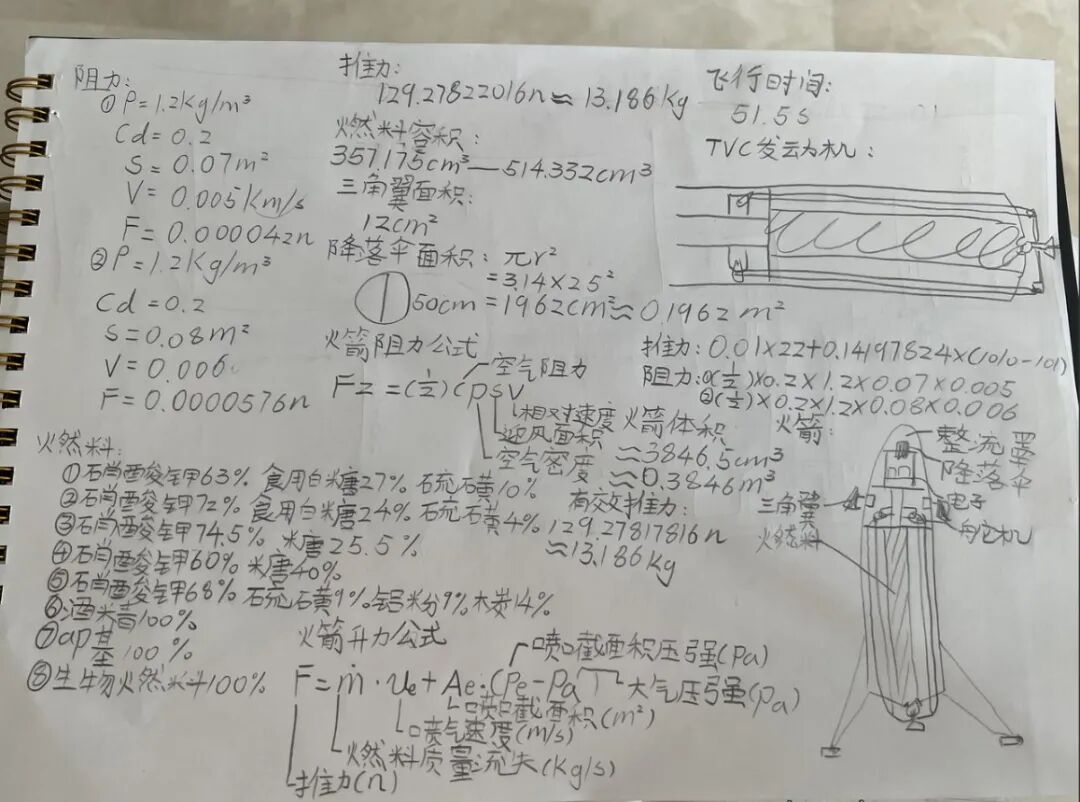 阻力:
①P=1.2Kg/m³
Cd=0.2
S=0.07m²
V=0.005Km/s
F=0.000042n
②P=1.2Kg/m³
Cd=0.2
S=0.08m²
V=0.006
F=0.0000576n
推力:
129.27822016n≈13.186Kg
燃料容积:
357.175cm³—514.332cm³
三角翼面积:
12cm²
降落伞面积: πr²
=3.14×25²
50cm =1962cm²≈0.1962m²
火箭阻力公式
空气阻力
Fz=(1/2)CρSV
相对速度
迎风面积
空气密度
飞行时间:
51.5s
TVC发动机:
推力:0.01×22+0.14197824×(1010-101)
阻力:①(1/2)×0.2×1.2×0.07×0.005
②(1/2)×0.2×1.2×0.08×0.006
火箭体积
≈3846.5cm³
≈0.3846m³
有效推力:
129.27817816n
≈13.186Kg
火箭:
整流罩
降落伞
电子
舵机
三角翼
燃料
燃料:
①硝酸钾63% 食用白糖27% 硫磺10%
②硝酸钾72% 食用白糖24% 硫磺4%
③硝酸钾74.5% 糖25.5%
④硝酸钾60% 糖40%
⑤硝酸钾68% 硫磺9% 铝粉9% 木炭14%
⑥酒精100%
⑦ap基100%
⑧生物燃料100%
火箭升力公式
喷口截面积压强(Pa)
F=ṁ·Ue+Ae·(Pe-Pa)
大气压强(pa)
喷口截面积(m²)
喷气速度(m/s)
燃料质量流失(Kg/s)
推力(n)